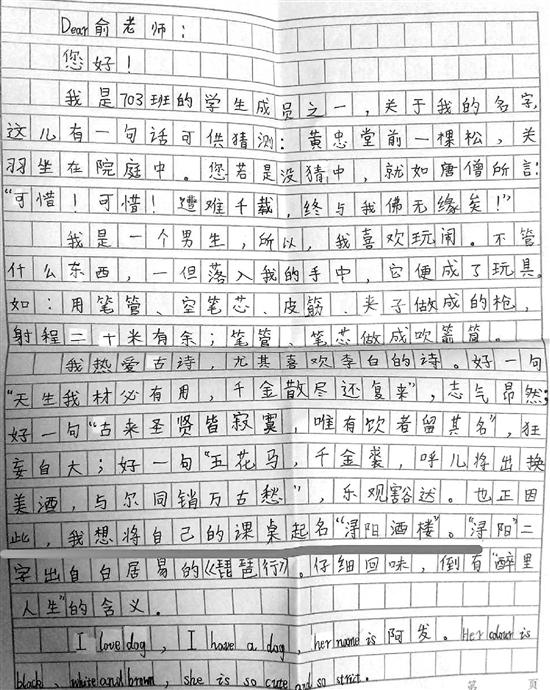 Dear俞老师：
您好！
我是703班的学生成员之一，关于我的名字，
这儿有一句话可供猜测：黄忠堂前一棵松，关
羽坐在院庭中。您若是没猜中，就如唐僧所言：
“可惜！可惜！遭难千载，终与我佛无缘矣！”
我是一个男生，所以，我喜欢玩闹。不管
什么东西，一但落入我的手中，它便成了玩具。
如：用笔管、空笔芯、皮筋、夹子做成的枪，
射程二十米有余；笔管、笔芯做成吹箭筒。
我热爱古诗，尤其喜欢李白的诗。好一句
“天生我材必有用，千金散尽还复来”，志气昂然；
好一句“古来圣贤皆寂寞，唯有饮者留其名”，狂
妄自大；好一句“五花马，千金裘，呼儿将出换
美酒，与尔同销万古愁”，乐观豁达。也正因
此，我想将自己的课桌起名“浔阳酒楼”。“浔阳”二
字出自白居易的《琵琶行》。仔细回味，倒有“醉里
人生”的含义。
I love dog，I have a dog，her name is 阿发。Her colour is
black，white and brown，she is so cute and so strict.
第 页